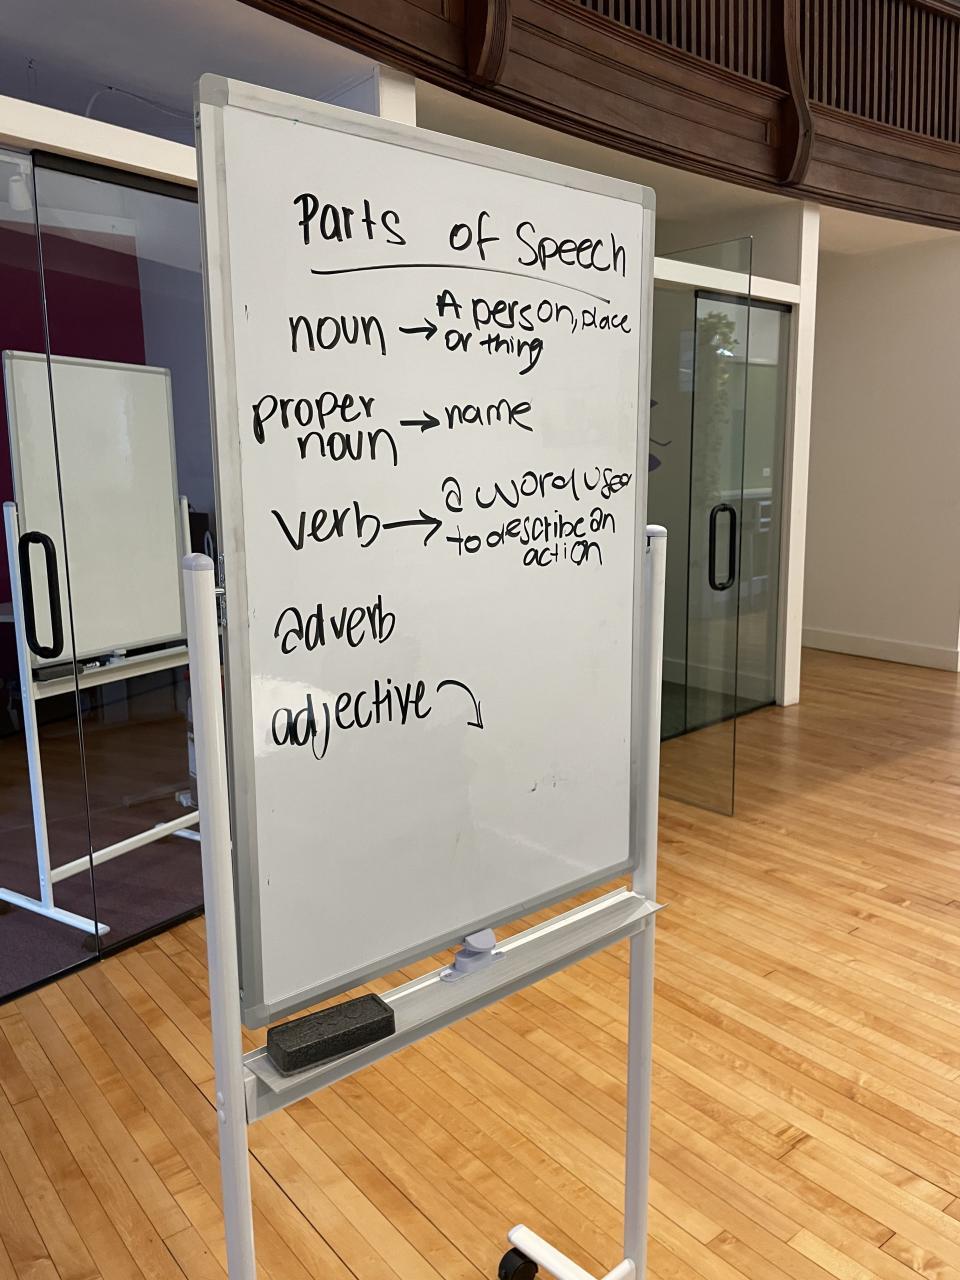 Parts of Speech
noun → A person, place
or thing
proper
noun → name
verb → a word used
to describe an
action
adverb
adjective